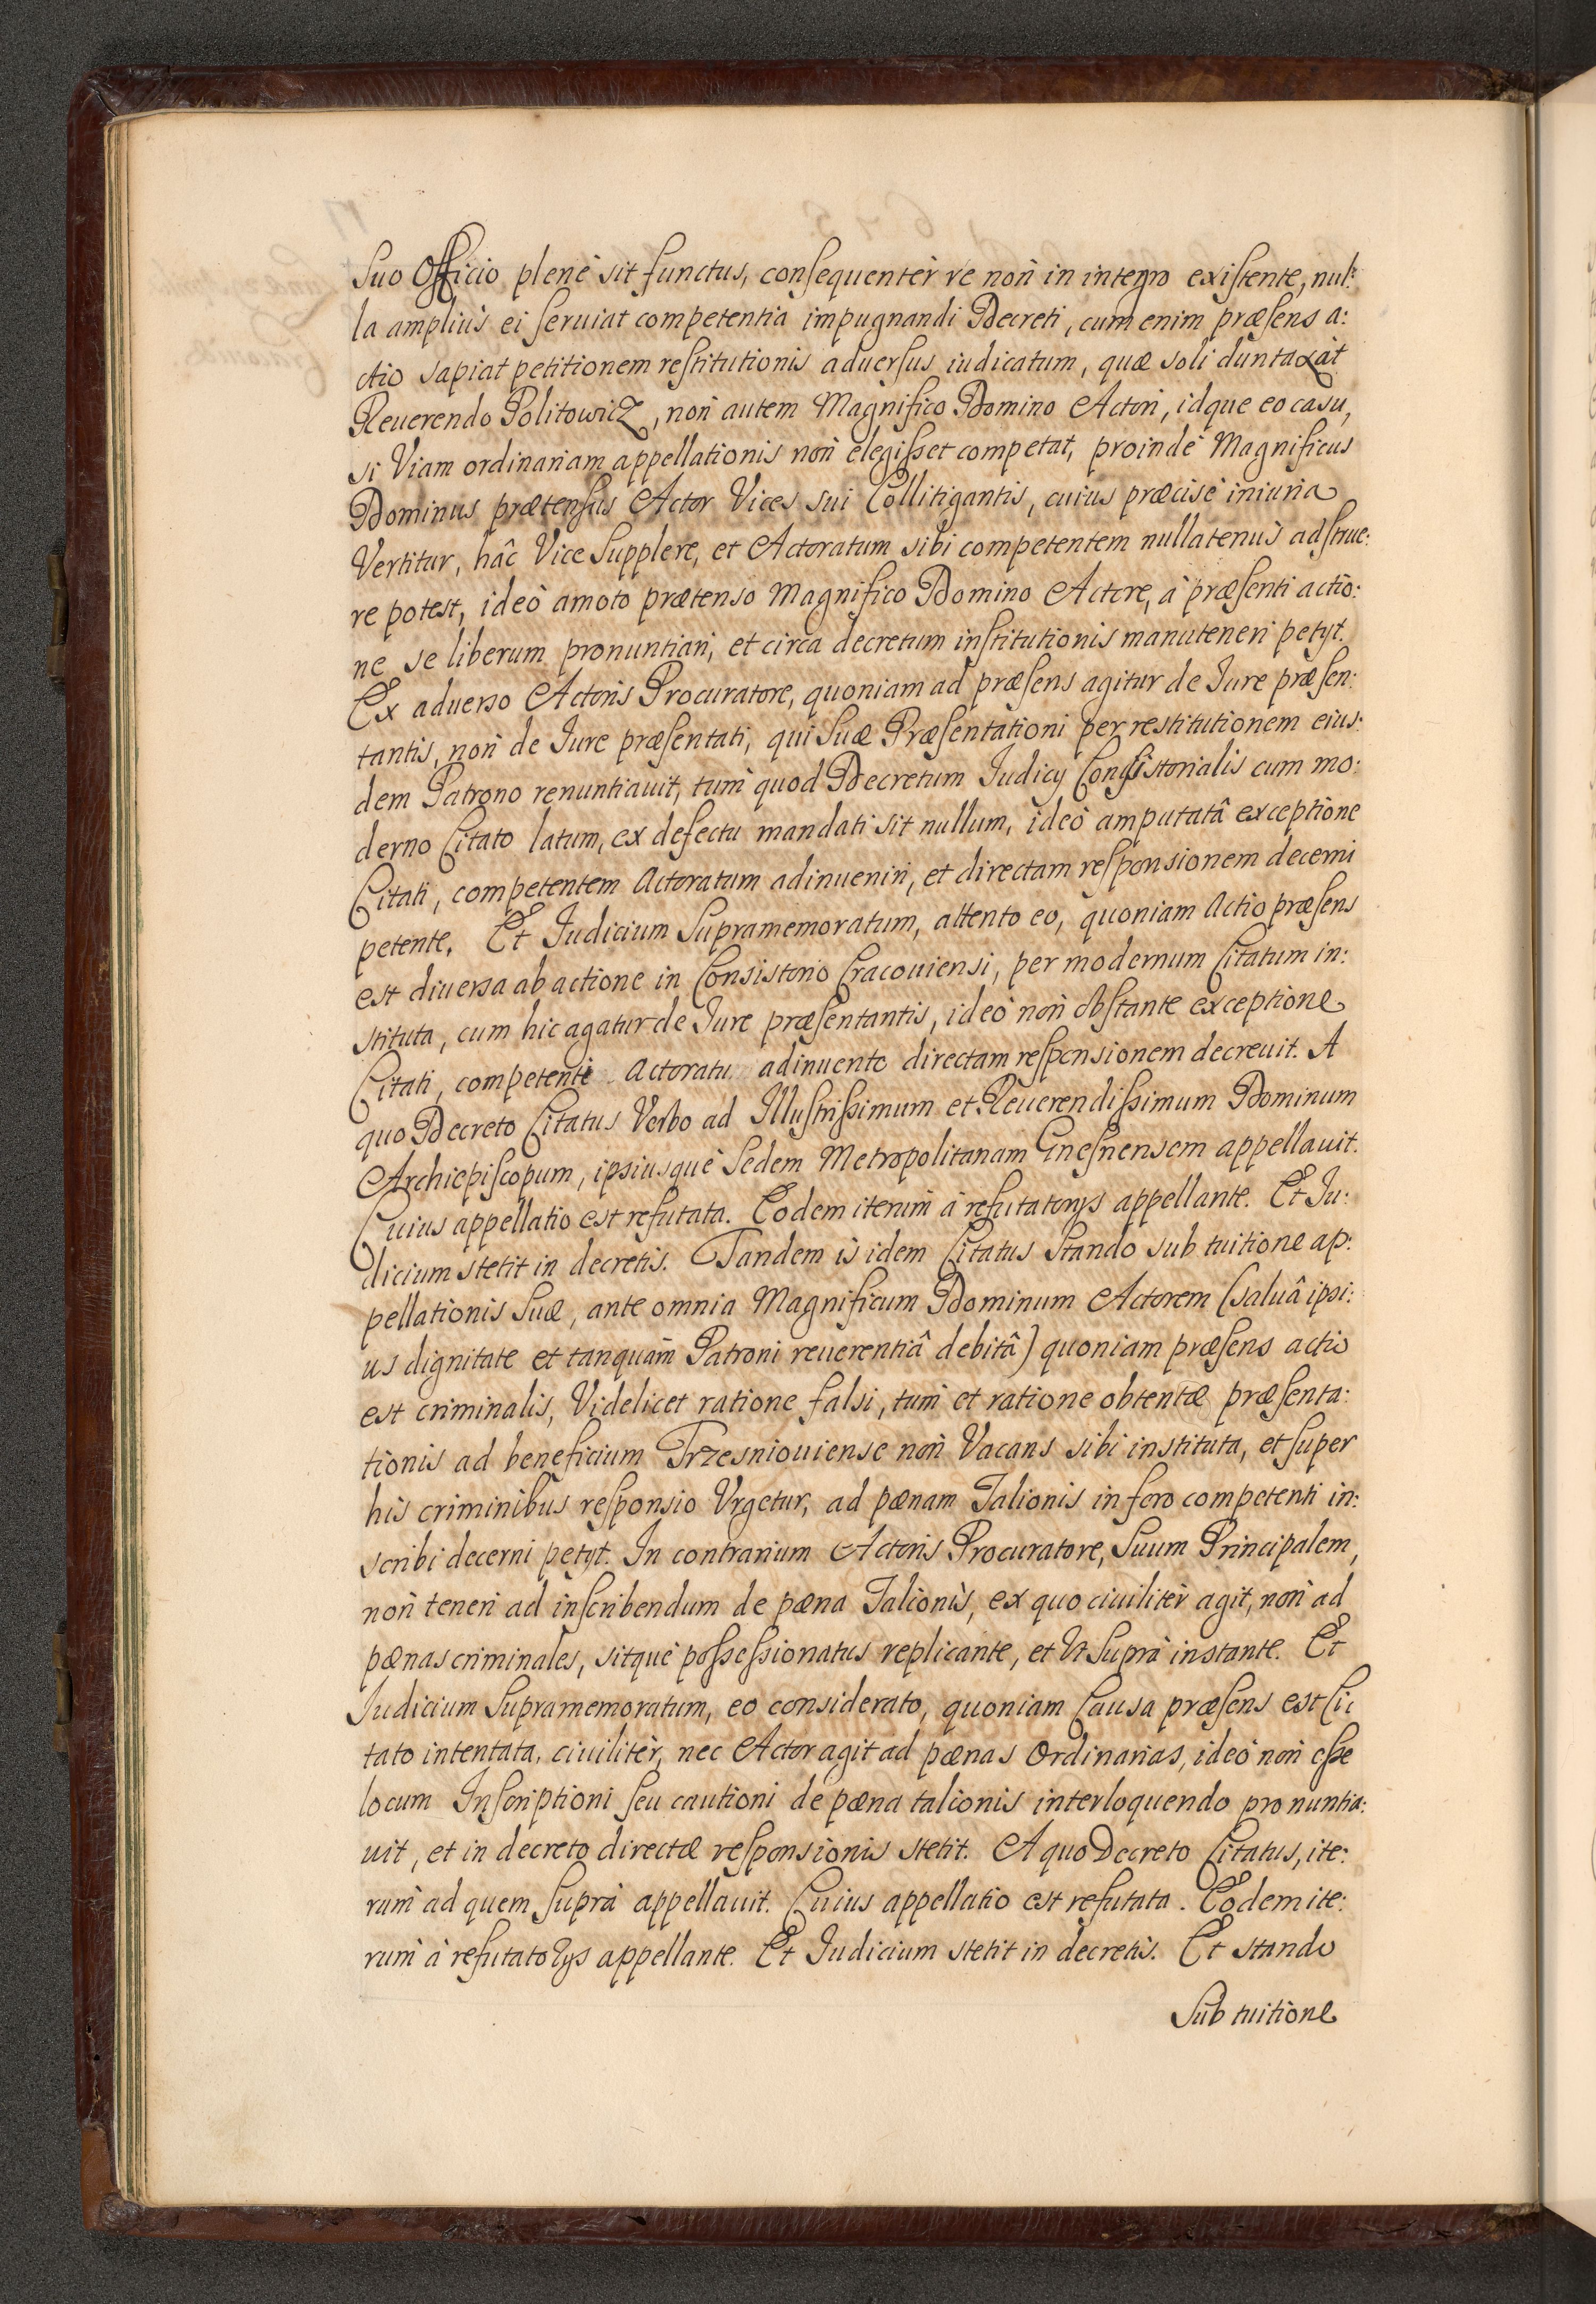 Suo Officio plenè sit functus, consequentèr re non in integro existente, nul:
la ampliùs ei seruiat competentia impugnandi Decreti, cum enim præsens a:
ctio sapiat petitionem restitutionis aduersus iudicatum, quæ soli duntaxàt
Reuerendo PolitowicZ, non autem Magnifico Domino Actori, idque eo casu,
si Viam ordinariam appellationis non elegisset competat, proindè Magnificus
Dominus prætensus Actor Vices sui Collitigantis, cuius præcisè iniuria
Vertitur, hâc Vice Supplere, et Actoratum sibi competentem nullatenùs adstrue:
re potest, ideò amoto prætenso Magnifico Domino Actore, à præsenti actio:
ne se liberum pronuntiari, et circa decretum institutionis manuteneri petyt.
Ex aduerso Actoris Procuratore, quoniam ad præsens agitur de Jure præsen:
tantis, non de Jure præsentati, qui Suæ Præsentationi per restitutionem eius:
dem Patrono renuntiauit, tum quod Decretum Judicy Consistorialis cum mo:
derno Citato latum, ex defectu mandati sit nullum, ideò amputatâ exceptione
Citati, competentem Actoratum adinueniri, et directam responsionem decerni
petente. Et Judicium Supramemoratum, attento eo, quoniam Actio præsens
est diuersa ab actione in Consistorio Cracouiensi, per modernum Citatum in:
stituta, cum hic agatur de Jure præsentantis, ideò non obstante exceptione
Citati, competenti Actoratu adinuento directam responsionem decreuit. A
quo Decreto Citatus Verbo ad Illustrissimum et Reuerendissimum Dominum
Archiepiscopum, ipsiusquè Sedem Metropolitanam Gnesnensem appellauit.
Cuius appellatio est refutata. Eodem iterum à refutatorys appellante. Et Ju:
dicium stetit in decretis. Tandem is idem Citatus Stando sub tuitione ap:
pellationis Suæ, ante omnia Magnificum Dominum Actorem (saluâ ipsi:
us dignitate et tanquam Patroni reuerentiâ debitâ) quoniam præsens actio
est criminalis, Videlicet ratione falsi, tum et ratione obtentæ præsenta:
tionis ad beneficium Trzesniouiense non Vacans sibi instituta, et super
his criminibus responsio Vrgetur, ad pænam Talionis in foro competenti in:
scribi decerni petyt. In contrarium Actoris Procuratore, Suum Principalem,
non teneri ad inscribendum de pæna Talionis, ex quo ciuilitèr agit, non ad
pænas criminales, sitquè possessionatus replicante, et Vt Suprà instante. Et
Judicium Supramemoratum, eo considerato, quoniam Causa præsens est Ci:
tato intentata, ciuilitèr, nec Actor agit ad pænas Ordinarias, ideò non esse
locum Inscriptioni seu cautioni de pæna talionis interloquendo pronuntia:
uit, et in decreto directæ responsionis stetit. A quo Decreto Citatus, ite:
rum ad quem Suprà appellauit. Cuius appellatio est refutata. Eodem ite:
rum à refutatorys appellante. Et Judicium stetit in decretis. Et stando
Sub tuitione